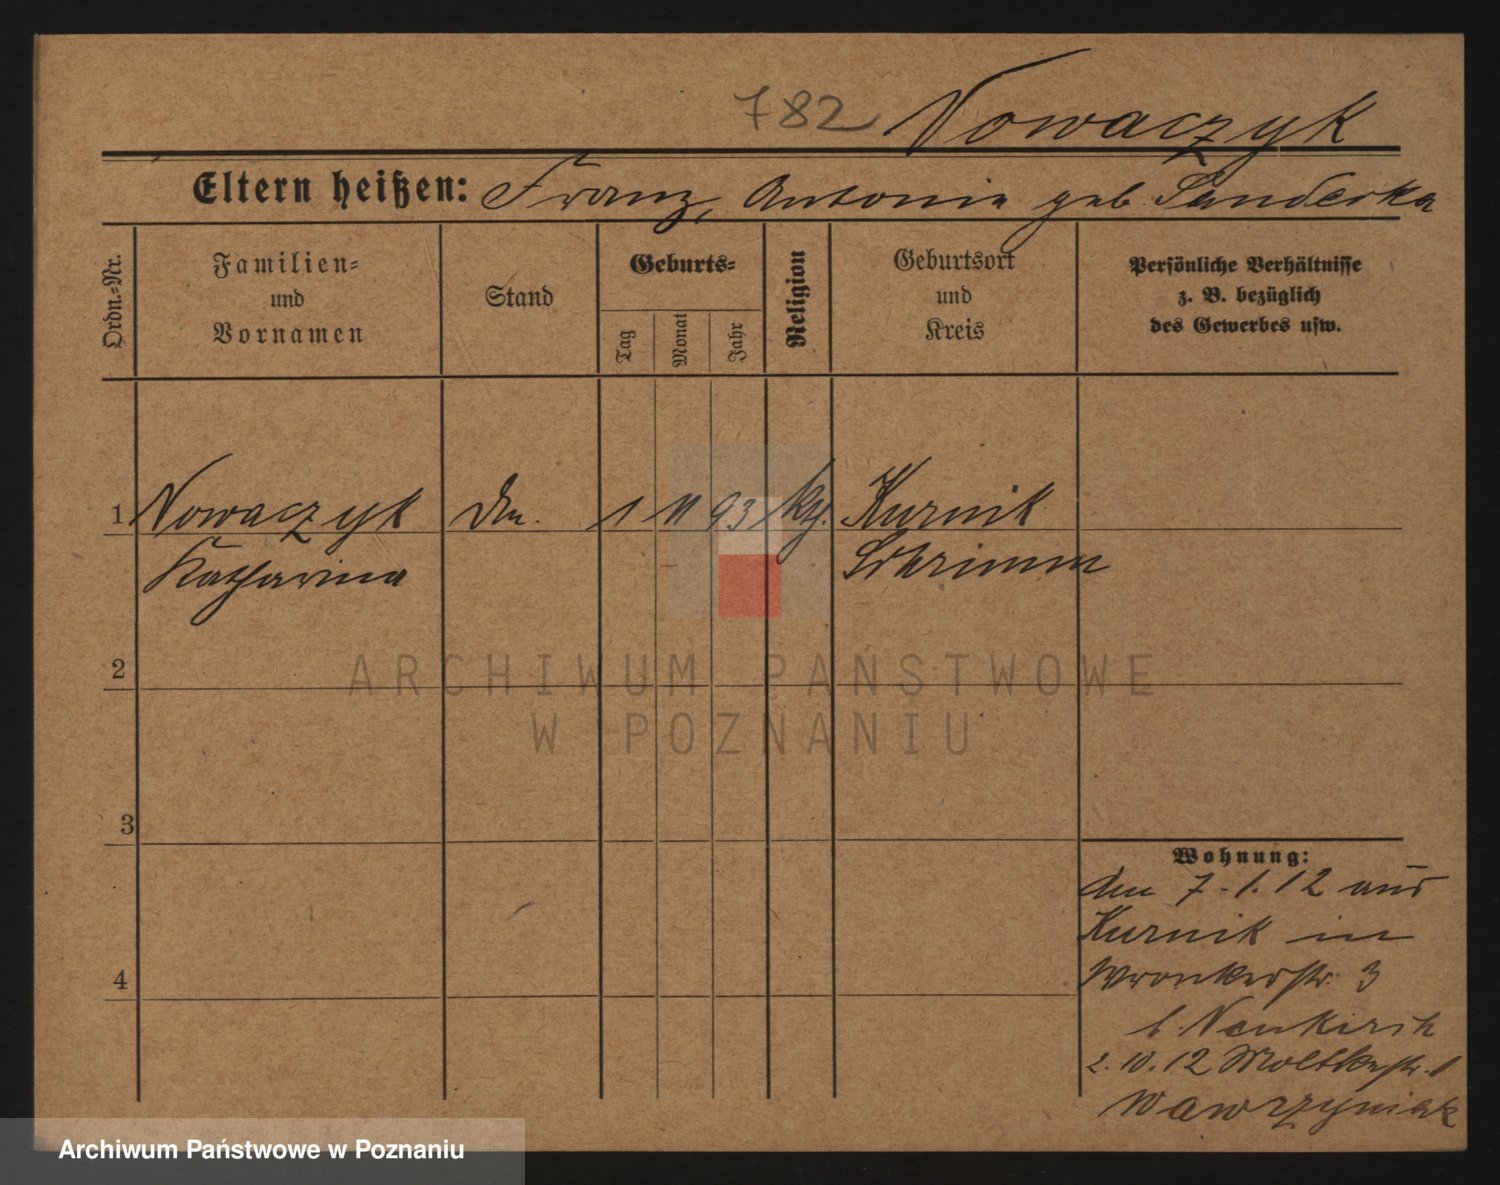 782 Nowaczyk
Eltern heißen: Franz, Antonie geb. Sanderska
Ordn.-Nr.
Familien-
und
Vornamen
Stand
Geburts-
Tag
Monat
Jahr
Religion
Geburtsort
und
Kreis
Persönliche Verhältnisse
z. B. bezüglich
des Gewerbes usw.
1 Nowaczyk 1 11 93 Kurnik
Katharina Schrimm
2
3
4
Wohnung:
den 7.1.12 aus
Kurnik in
Wronkerstr. 3
b. Neukirch
2.10.12 Moltkestr. 1
Wawrzyniak
ARCHIWUM PAŃSTWOWE
W POZNANIU
Archiwum Państwowe w Poznaniu